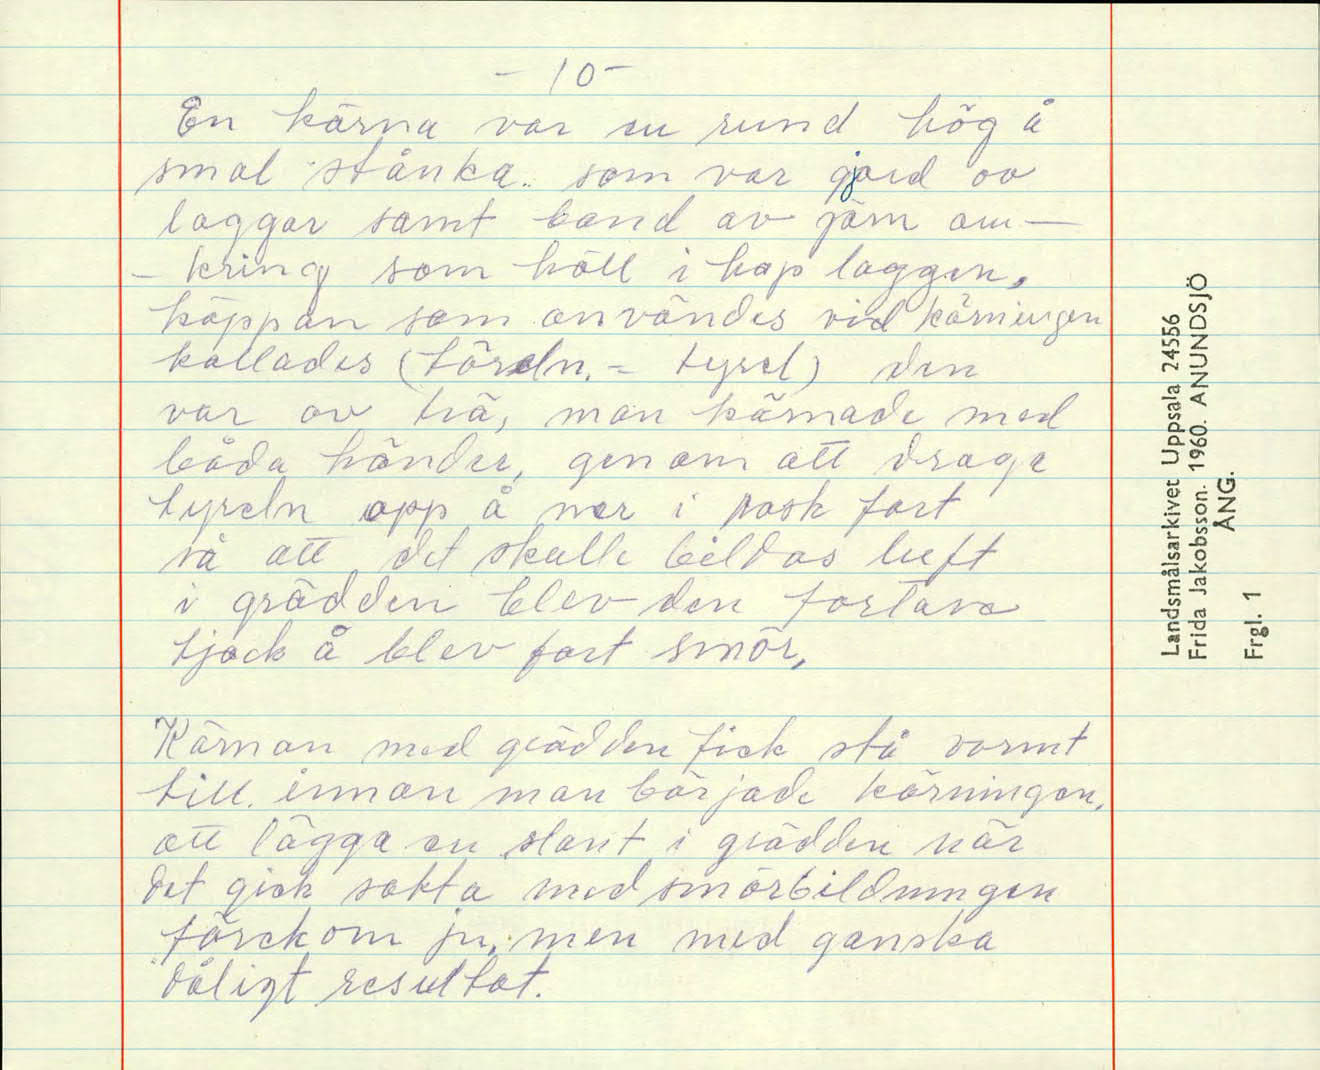 - 10 -
En kärna var en rund hög å
smal stånka.. som var gjord av
laggar samt band av järn om-
- kring som höll i hop laggen,
käppan som användes vid kärningen
kallades (töreln. = tyrel) den
var av trä, man kärnade med
båda händer, genom att draga
tyreln opp å ner i rask fart
så att det skulle bildas luft
i grädden blev den fortare
tjock å blev fort smör,
Kärnan med grädden fick stå varmt
till. innan man började kärningen,
att lägga en slant i grädden när
det gick sakta med smörbildningen
förekom ju, men med ganska
dåligt resultat.
Landsmålsarkivet Uppsala 24556
Frida Jakobsson. 1960. ANUNDSJÖ
ÅNG.
Frgl. 1